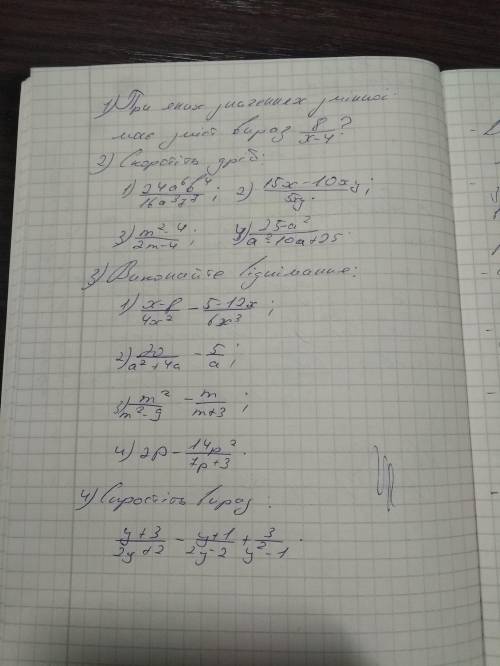 1) При яких значеннях змінної
має зміст вираз 8/(x-4)?
2) Скоротіть дріб:
1) 24a⁶b⁴/16a³b⁷; 2) (15x-10xy)/5xy;
3) (m²-4)/(2m-4); 4) (25-a²)/(a²-10a+25).
3) Виконайте віднімання:
1) (x-8)/4x² - (5-12x)/6x³;
2) 20/(a²+4a) - 5/a;
3) m²/(m²-9) - m/(m+3);
4) 2p - 14p²/(7p+3).
4) Спростіть вираз:
(y+3)/(2y+2) - (y+1)/(2y-2) + 3/(y²-1).